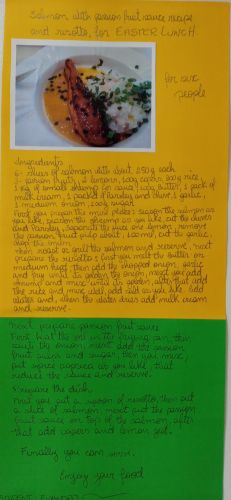 Salmon with passion fruit sauce recipe
and risotto, for EASTER LUNCH.
for six
people
Ingredients
6 slices of salmon with about 250g each
3 passion fruit, 2 lemons, 100g capers, 500g rice,
1 kg of small shrimp for sauce, 100g butter, 1 pack of
milk cream, 1 packed of parsley and chive, 2 garlic,
1 medium onion, 200g sugar.
First you prepare the main plates: season the salmon as
you like, the as you like cut the chives
and parsley, separate the juice one lemon, remove
the passion fruit pulp about, 1 lemon, cut the garlic,
chop the onion.
Then roast or grill the salmon and reserve, next
prepare the risotto: first you melt the butter on
medium high, then add the chopped onion, garlic
and fry until its golden the onion, next you add
shrimp and mix until its golden, after that add
the rice and mix well, add salt as you like. Add
water and, when the water dries add milk cream
and reserve.
Next prepare passion fruit sauce
First heat the on water then
saute the onion, next add the passion
fruit juice and sugar, then you mix,
put some as you like, that
reduce the sauce and reserve.
Prepare the dish
First you put a spoon of risotto, then put
a slice of salmon, next put the passion
fruit sauce on top of the salmon, after
that add capers and lemon zest.
Finally you can serve.
Enjoy your food